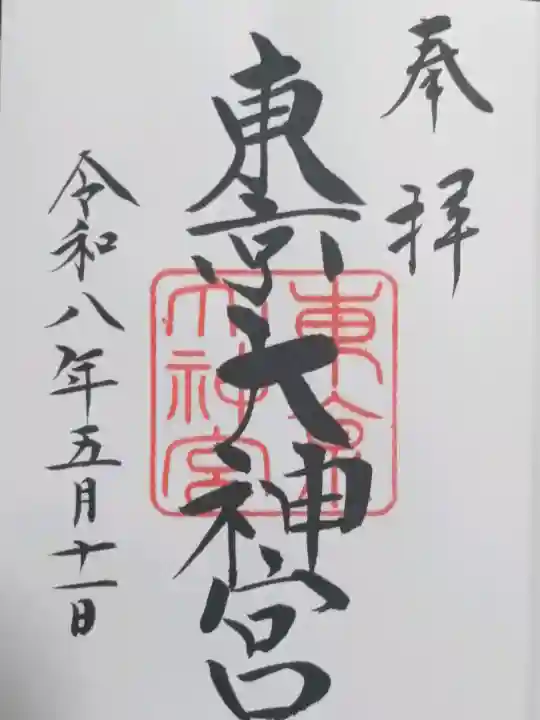 奉拝
東京大神宮
東京
大神宮
令和八年五月十一日